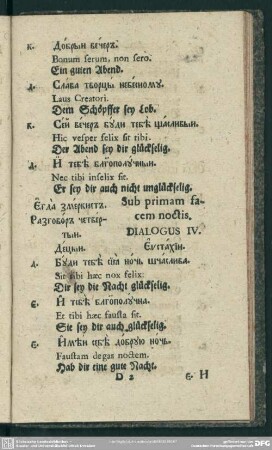 к. До́брый ве́черъ.
Bonum serum, non sero.
Ein guten Abend.
д. Сла́ва творцы̀ небе́сному.
Laus Creatori.
Dem Schöpffer sey Lob.
к. Се́й ве́черъ бу́ди тебѣ̀ ща́сливый.
Hic vesper felix sit tibi.
Der Abend sey dir glückselig.
д. И҆ тебѣ̀ благополу́чный.
Nec tibi infelix sit.
Er sey dir auch nicht unglückselig.
Е҆гда̀ зме́ркнетъ.
Разгово́ръ четве́р-
тый.
Децый.
Sub primam fa-
cem noctis.
DIALOGUS IV.
Еѵста́хїи.
д. Бу́ди тебѣ̀ сїѧ̀ ночь щасли́ва.
Sit tibi hæc nox felix.
Dir sey die Nacht glückselig.
є. И҆ тебѣ̀ благополу́чна.
Et tibi hæc fausta sit.
Sie sey dir auch glückselig.
є. И҆мѣ́й себѣ̀ до́брую ночь.
Faustam degas noctem.
Hab dir eine gute Nacht.
D 2
є. Н